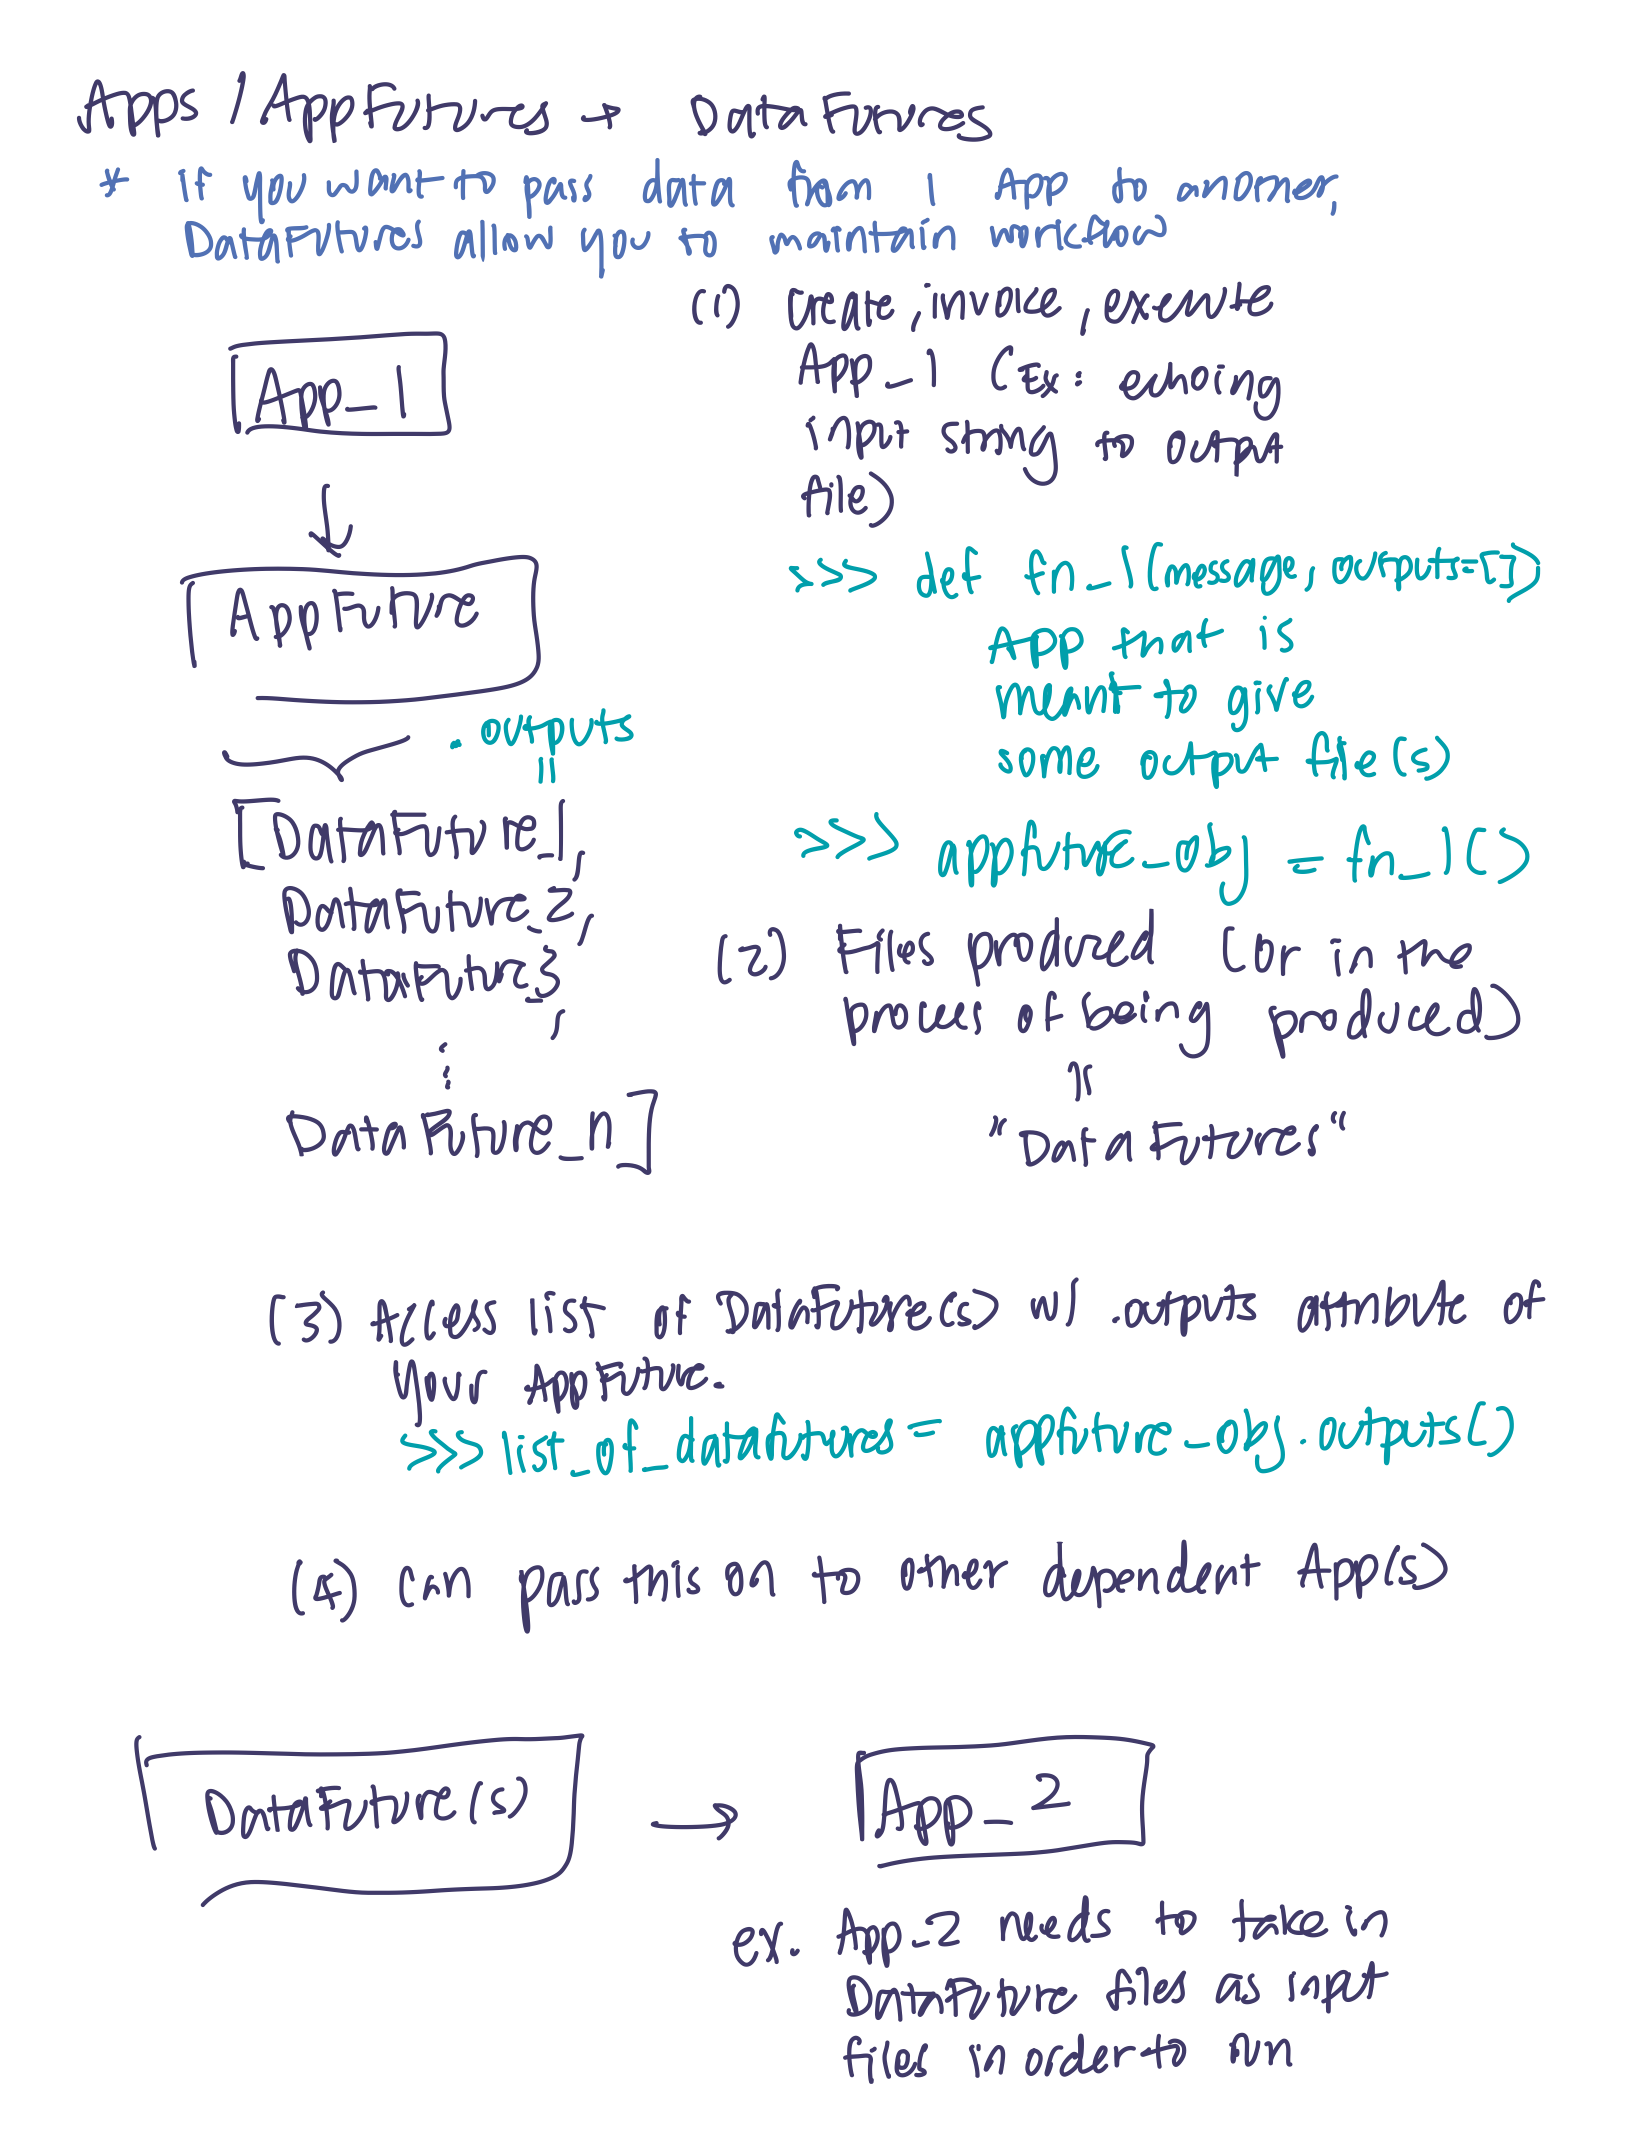 Apps / AppFutures → DataFutures
* if you want to pass data from 1 App to another,
DataFutures allow you to maintain workflow
App_1
AppFuture
. outputs
=
[DataFuture_1,
DataFuture_2,
DataFuture_3
,
⋮
DataFuture_n]
(1) create, invoke, execute
App_1 (Ex: echoing
input string to output
file)
>>> def fn_1(message, outputs=[])
App that is
meant to give
some output file(s)
>>> appfuture_obj = fn_1()
(2) Files produced (or in the
process of being produced)
=
"DataFutures"
(3) Access list of DataFuture(s) w/ .outputs attribute of
your AppFuture.
>>> list_of_datafutures = appfuture_obj.outputs()
(4) can pass this on to other dependent App(s)
DataFuture(s) → App_2
ex. App_2 needs to take in
DataFuture files as input
files in order to run